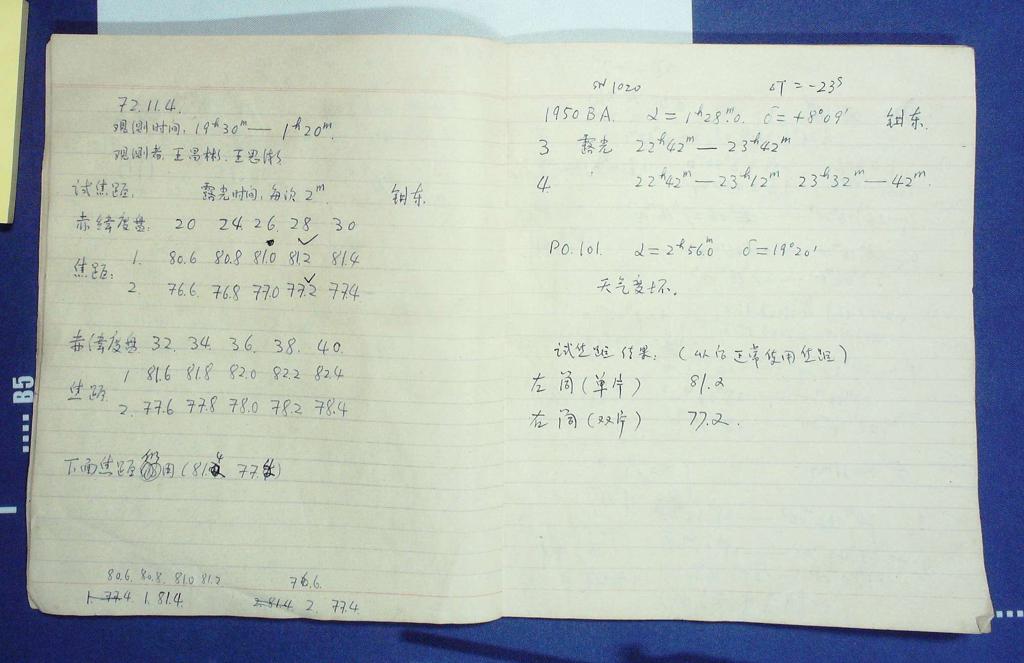 72.11.4.
观测时间: 19ʰ30ᵐ — 1ʰ20ᵐ
观测者: 王昌彬. 王思潮
试焦距. 露光时间: 每次 2ᵐ
赤纬度盘: 20 24. 26. 28 30
焦距: 1. 80.6 80.8 81.0 81.2 81.4
2. 76.6. 76.8 77.0 77.2 77.4
赤纬度盘 32. 34. 36. 38. 40.
焦距 1 81.6 81.8 82.0 82.2 82.4
2. 77.6 77.8 78.0 78.2 78.4
下面焦距仍用 (81.4 77.)
80.6. 80.8. 81.0 81.2 76.6.
1. 77.4. 1. 81.4. 2. 81.4 2. 77.4.
1020 ΔT = -23ˢ
1950 BA. α = 1ʰ28ᵐ.0. δ = +8°09′
3 露光 22ʰ42ᵐ — 23ʰ42ᵐ
4. 22ʰ42ᵐ — 23ʰ12ᵐ 23ʰ32ᵐ — 42ᵐ.
PO.101. α = 2ʰ56ᵐ.0 δ = 19°20′
天气变坏.
试焦距结果: (以后正常使用焦距)
左筒 (单片) 81.2
右筒 (双片) 77.2.
B5